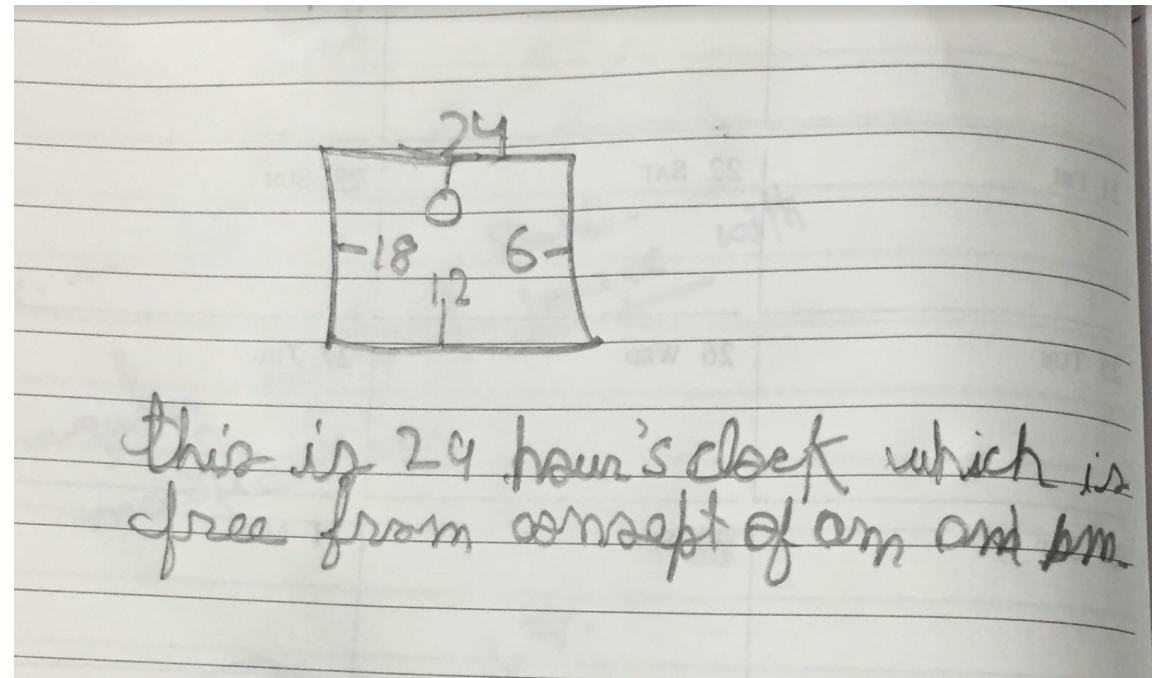 24
18 6
12
this is 24 hour's clock which is
free from concept of am and pm.